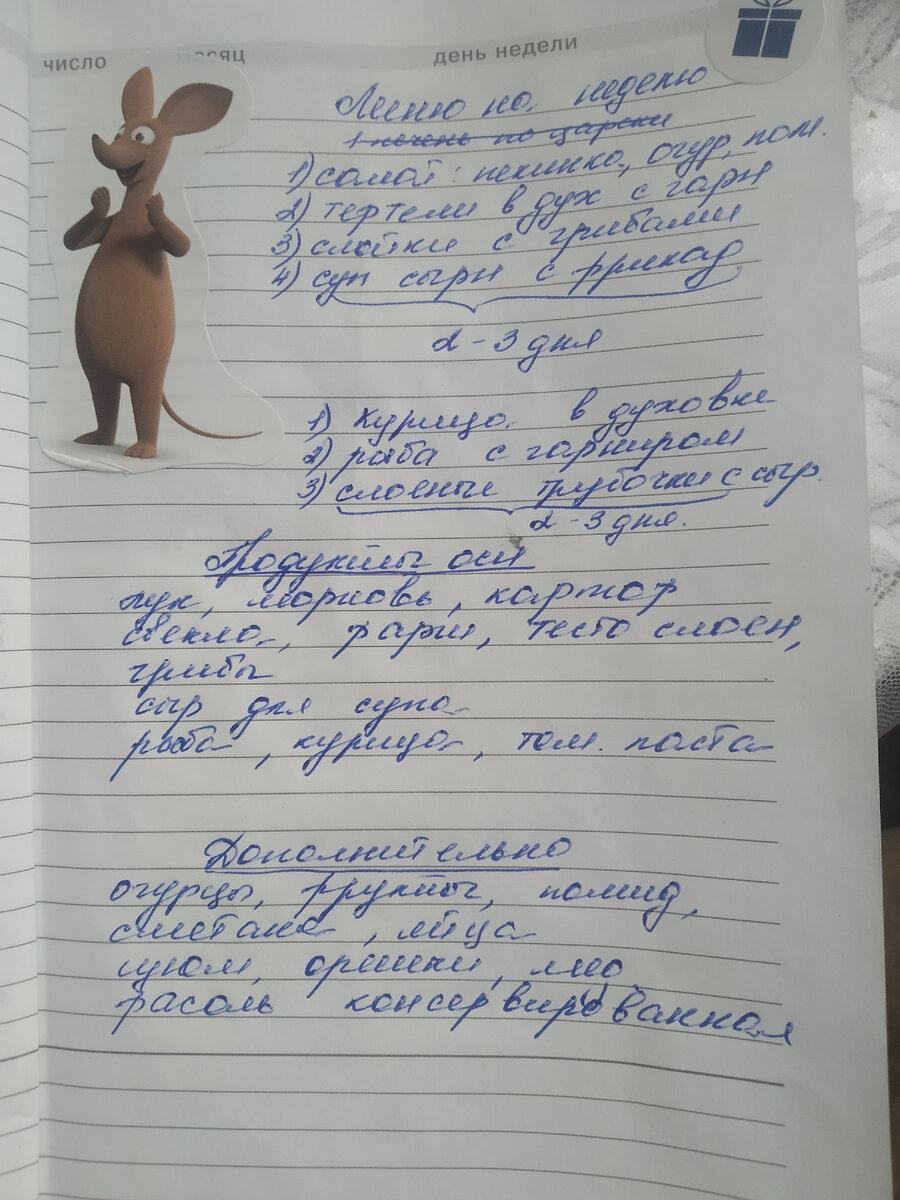 число месяц день недели
Меню на неделю
1 печень по царски
1) салат: пекинка, огур, пом.
2) тефтели в дух с гарн
3) слойки с грибами
4) суп сырн с фрикад
2-3 дня
1) Курица в духовке
2) рыба с гарниром
3) слоеные трубочки с сыр.
2-3 дня.
Продукты осн
лук, морковь, картоф
свекла, фарш, тесто слоен,
грибы
сыр для супа
рыба, курица, том. паста
Дополнительно
огурцы, фрукты, помид,
сметана, яйца
изюм, орешки,
фасоль консервированная